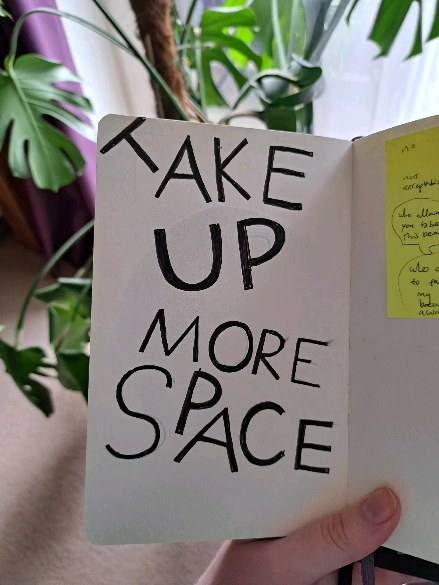 TAKE
UP
MORE
SPACE
no
not
acceptable
who allow
you to be
this bea
who
to
my